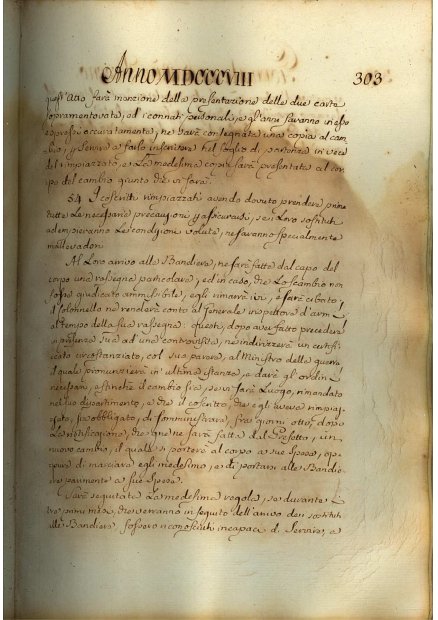 Anno MDCCCVIII 303
quest'atto farà menzione della presentazione delle due carte
sopramentovate, ed i connati personali, e gli anni saranno in esso
espressi accuratamente, ne sarà consegnata una copia al cam
bio, per farlo inscrivere nel foglio di partenza in vece
del rimpiazzato, e la medesima copia sarà presentata al cor
po del cambio giunto che vi sarà.
54. I coscritti rimpiazzati avendo dovuto prendere prima
tutte le necessarie precauzioni per assicurarsi, se i loro sostituti
adempieranno le condizioni volute, ne saranno specialmente
mallevadori.
Al loro arrivo alle Bandiere, ne farà fatta dal capo del
corpo una rassegna particolare, ed in caso, che lo scambio non
fosse giudicato ammissibile, egli rimarrà ivi, e sarà cibato, i
l Colonnello ne renderà conto al Generale inspettore d'armi
al tempo della sua rassegna: questi, dopo aver fatto procedere
in presenza sua ad una controvisita, ne indirizzerà un certifi
cato circostanziato, col suo parere, al Ministro della guerra
il quale pronunzierà in ultima istanza, e darà gli ordini
necessari, affinchè il cambio sia, se vi sarà luogo, rimandato
nel suo dipartimento, e che il coscritto, che egli aveva rimpiaz
zato, sia obbligato, di somministrare, fra giorni otto, dopo
la notificazione, che gliene sarà fatta dal Prefetto, un
nuovo cambio, il quale si porterà al corpo a sue spese, op
pure di marciare egli medesimo, e di portarsi alle Bandie
re parimente a sue spese.
Sarà seguitata la medesima regola, se durante i
tre primi mesi, che verranno in seguito dell'arrivo dei sostituti
alle Bandiere, fossero riconosciuti incapaci di servire, a